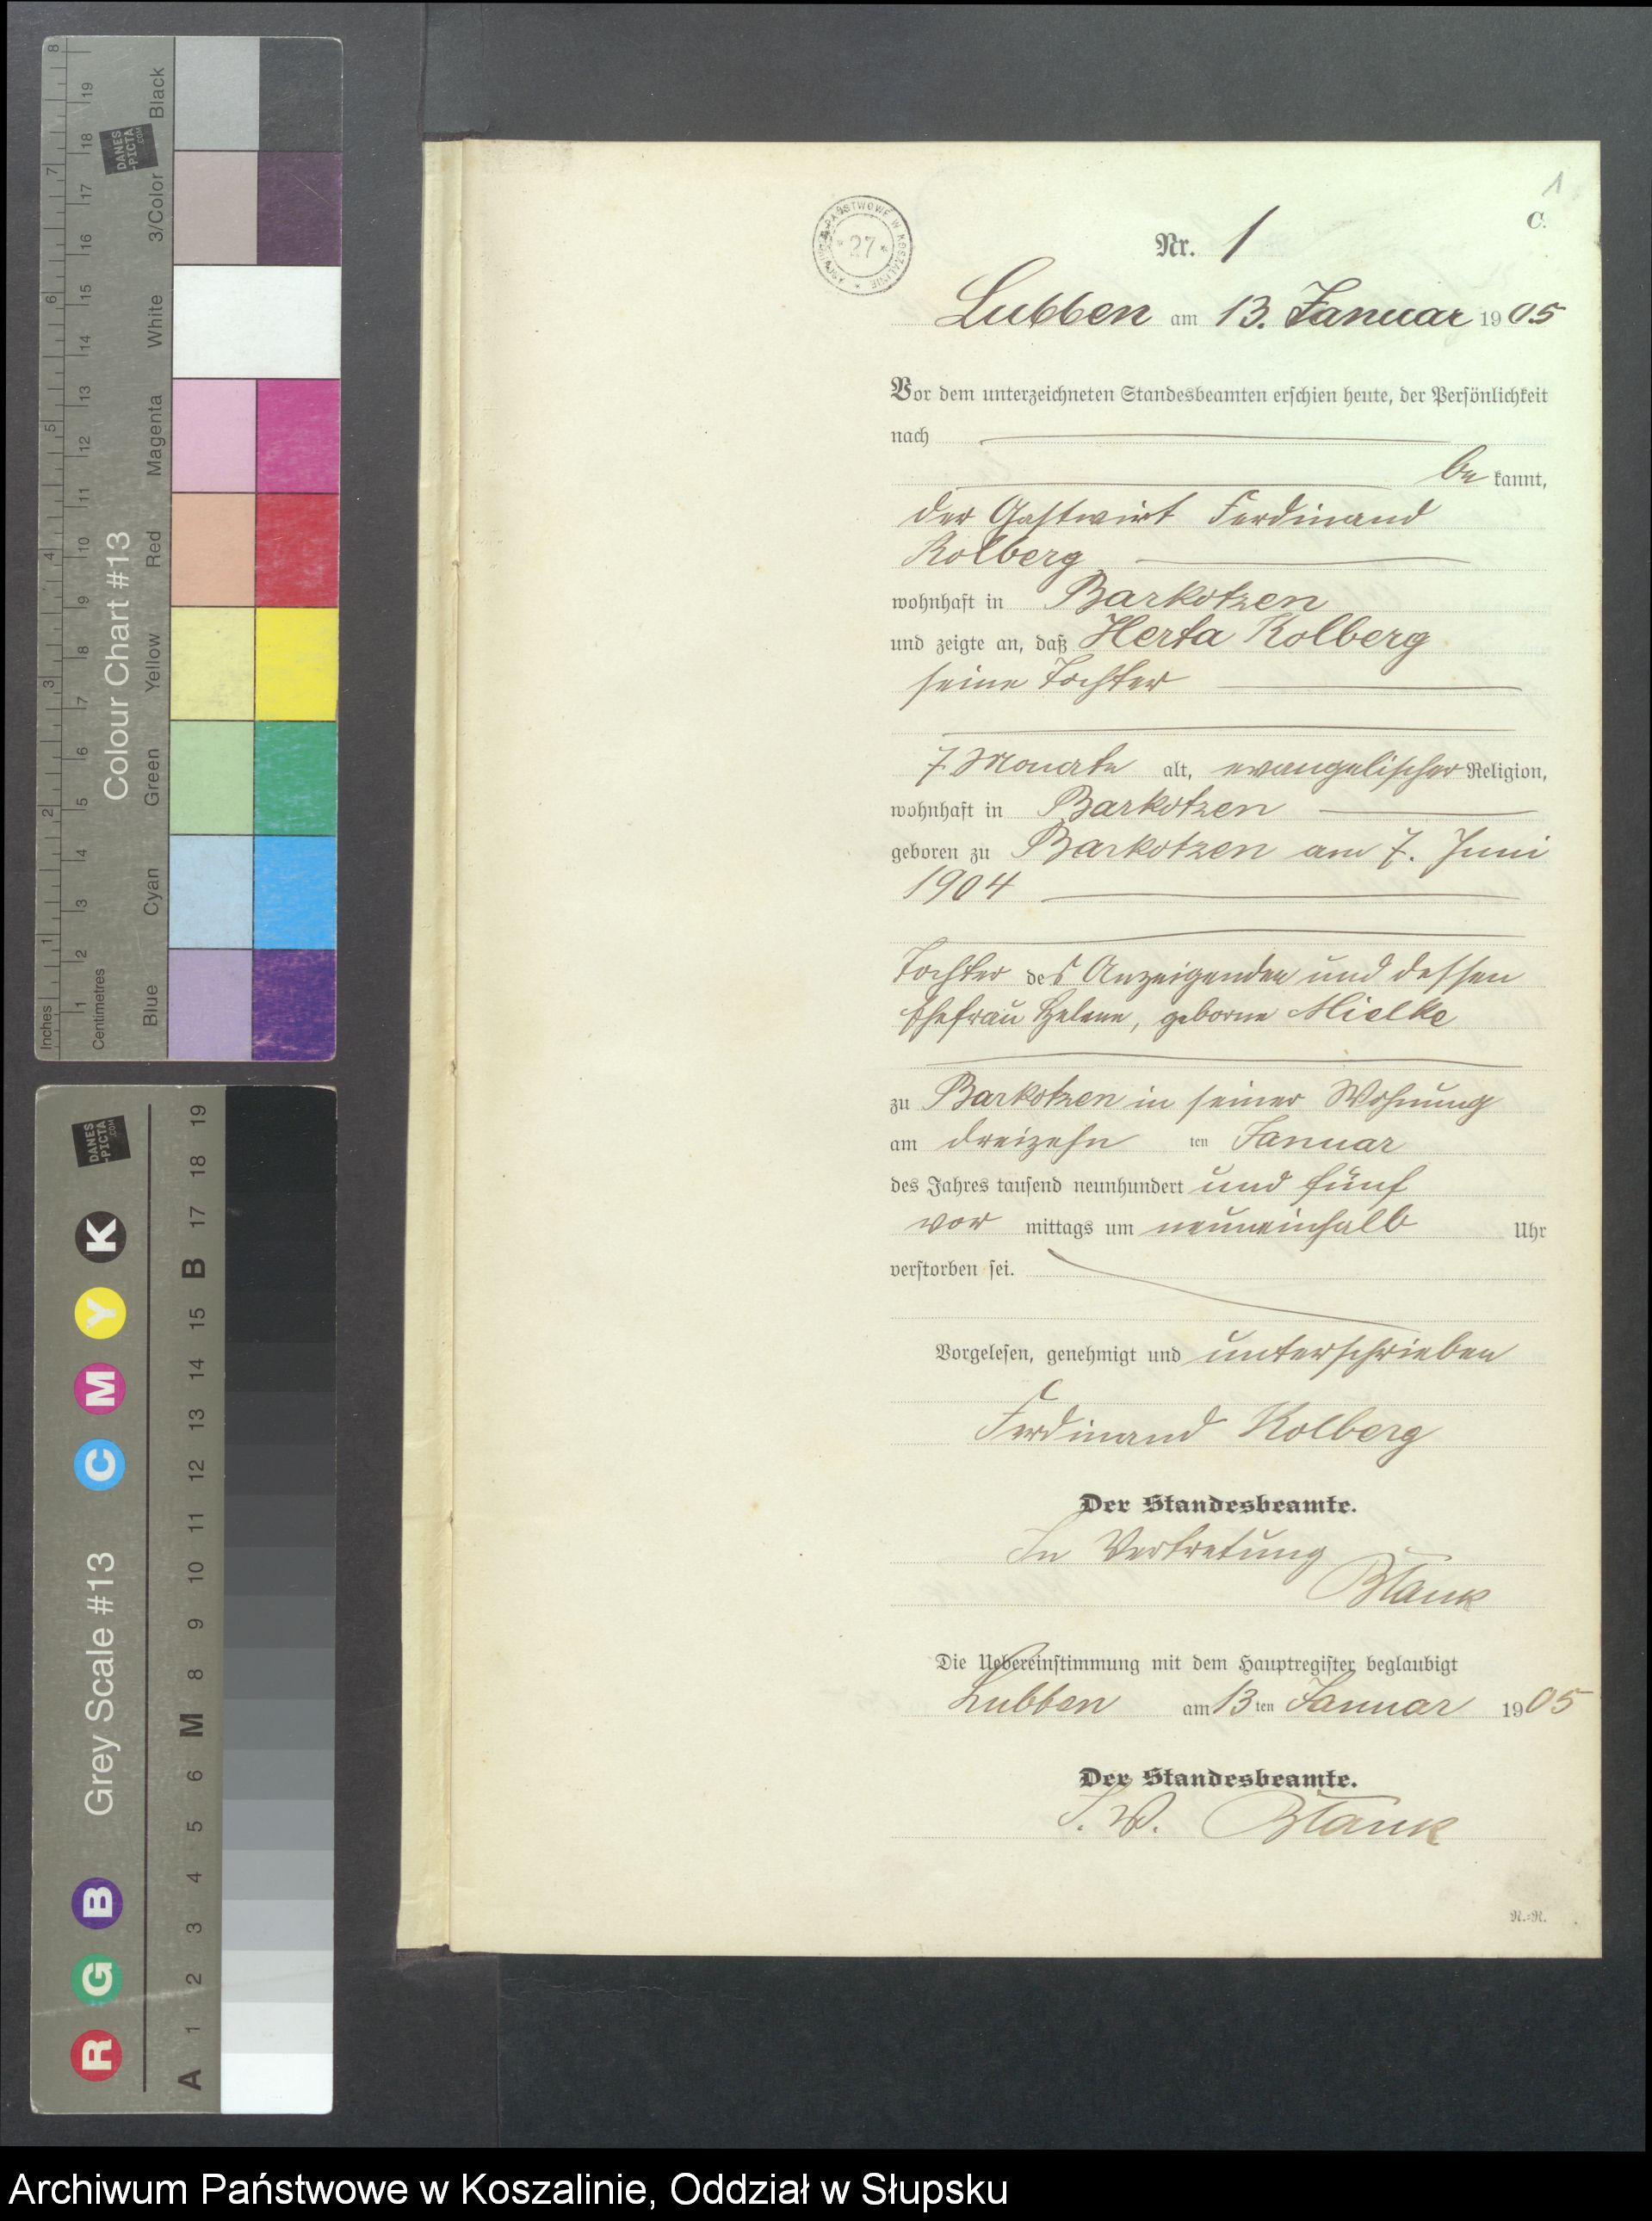 1
C.
ARCHIWUM PAŃSTWOWE W KOSZALINIE
* 27 *
Nr. 1
Lubben am 13. Januar 1905
Vor dem unterzeichneten Standesbeamten erschien heute, der Persönlichkeit
nach
be kannt,
der Gastwirt Ferdinand
Kolberg
wohnhaft in Barkotzen
und zeigte an, daß Herta Kolberg
seine Tochter
7 Monate alt, evangelischer Religion,
wohnhaft in Barkotzen
geboren zu Barkotzen am 7. Juni
1904
Tochter des Anzeigenden und dessen
Ehefrau Helene, geborne Mielke
zu Barkotzen in seiner Wohnung
am dreizehn ten Januar
des Jahres tausend neunhundert und fünf
vor mittags um neuneinhalb Uhr
verstorben sei.
Vorgelesen, genehmigt und unterschrieben
Ferdinand Kolberg
Der Standesbeamte.
In Vertretung
Blank
Die Uebereinstimmung mit dem Hauptregister beglaubigt
Lubben am 13 ten Januar 1905
Der Standesbeamte.
I. V. Blank
N.=N.
Colour Chart #13
DANES
-PICTA
.COM
Inches 1 2 3 4 5 6 7 8
Centimetres 1 2 3 4 5 6 7 8 9 10 11 12 13 14 15 16 17 18 19
Blue Cyan Green Yellow Red Magenta White 3/Color Black
Grey Scale #13
DANES
-PICTA
.COM
R G B C M Y K
A 1 2 3 4 5 6 M 8 9 10 11 12 13 14 15 B 17 18 19
Archiwum Państwowe w Koszalinie, Oddział w Słupsku